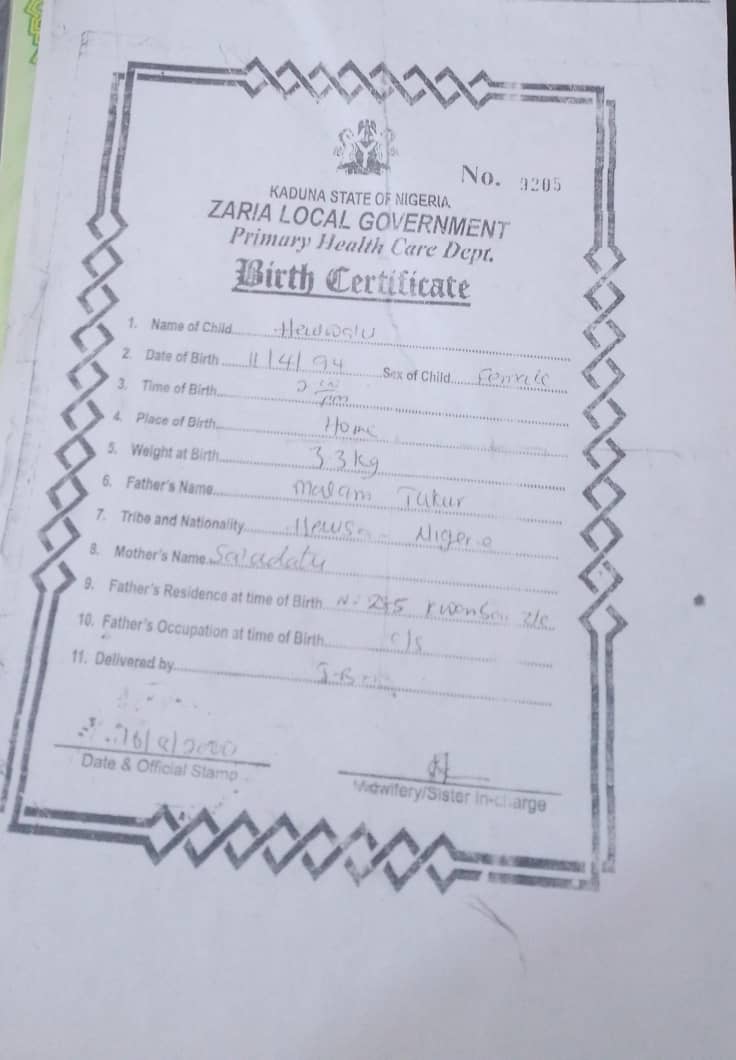 No. 9205
KADUNA STATE OF NIGERIA
ZARIA LOCAL GOVERNMENT
Primary Health Care Dept.
Birth Certificate
1. Name of Child
2. Date of Birth 11/4/94 Sex of Child Female
3. Time of Birth 2 pm
4. Place of Birth Home
5. Weight at Birth 33kg
6. Father's Name Malam Tukur
7. Tribe and Nationality Hewsa - Nigeria
8. Mother's Name Sa'adatu
9. Father's Residence at time of Birth
10. Father's Occupation at time of Birth c/s
11. Delivered by
Date & Official Stamp
Midwifery/Sister In-charge